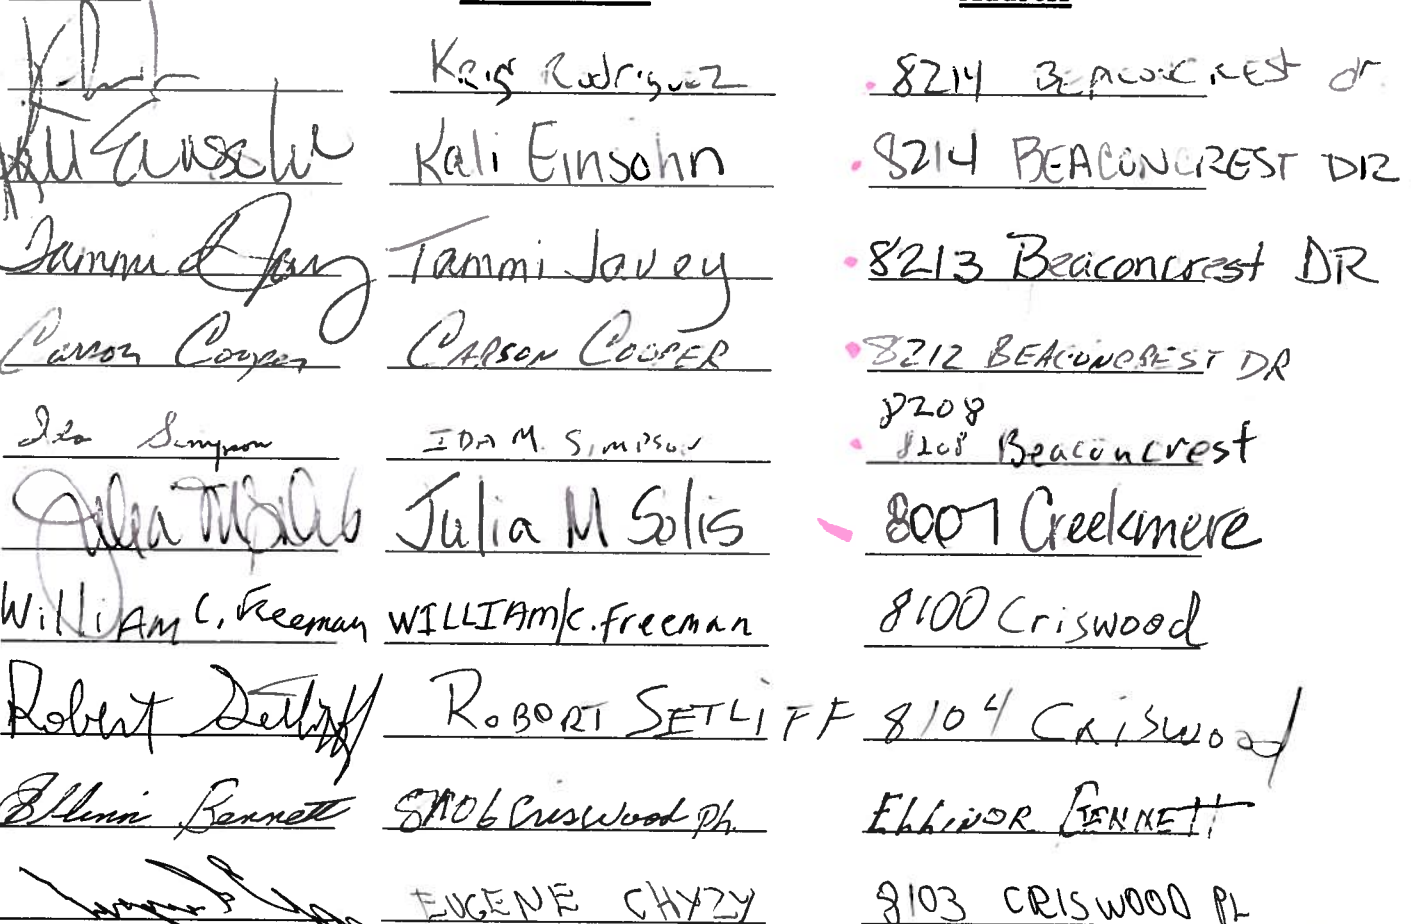 Kris Rodriguez 8214 BEACONCREST dr
Kali Einsohn Kali Einsohn 8214 BEACONCREST DR
Tammi Jovey Tammi Jovey 8213 Beaconcrest DR
Carson Cooper CARSON COOPER 8212 BEACONCREST DR
8208
Ida Simpson IDA M. SIMPSON 8208 Beaconcrest
Julia M Solis Julia M Solis 8007 Creekmere
WilliAM C. Freeman WILLIAM C. Freeman 8100 Criswood
Robert Setliff ROBORT SETLIFF 8104 CRiSWood
Bennett 8106 Criswood ELLINOR BENNETT
EUGENE CHYZY 8103 CRISWOOD PL